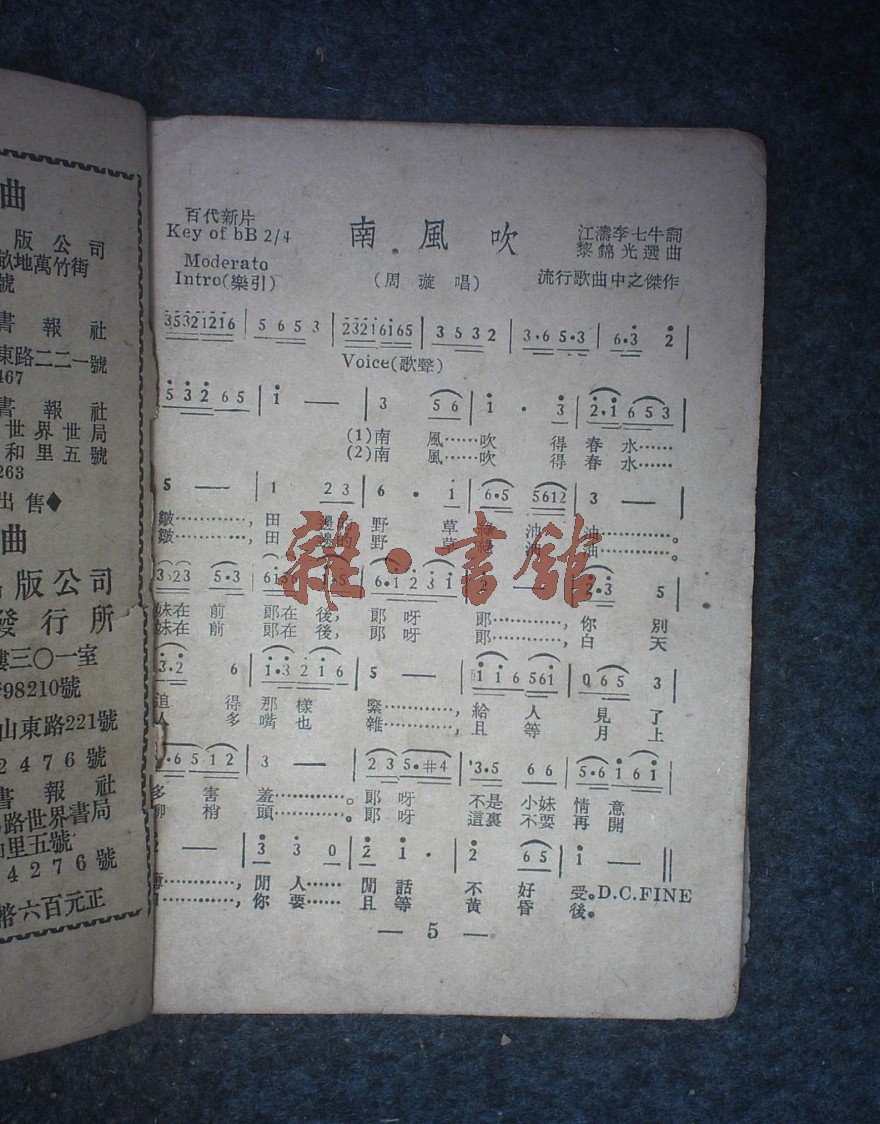 曲
版公司
畝地萬竹街
號
書報社
東路二二一號
467
書報社
世界世局
和里五號
263
出售◆
曲
出版公司
發行所
樓三〇一室
98210號
山東路221號
2476號
書報社
路世界書局
山里五號
4276號
幣六百元正
百代新片
Key of bB 2/4
Moderato
Intro(樂引)
南風吹
(周璇唱)
江濤李七牛詞
黎錦光選曲
流行歌曲中之傑作
35321216 | 5 6 5 3 | 23216165 | 3 5 3 2 | 3·6 5·3 | 6·3 2 |
Voice(歌聲)
5 3 2 6 5 | 1 — | 3 5 6 | 1 · 3 | 2·1 6 5 3 |
(1)南 風……吹 得 春 水……
(2)南 風……吹 得 春 水……
5 — | 1 2 3 | 6 · 1 | 6·5 5612 | 3 — |
皺…………,田 邊的 野 草 綠 油 油…………。
皺…………,田 邊的 野 草 綠 油 油…………。
5·3 | 6·1 2 3 1 | — | 2·3 5 |
妹在 前 郞在 後, 郞 呀 郞…………,你 別
妹在 前 郞在 後, 郞 呀 郞…………,白 天
3·2 6 | 1·3 2 1 6 | 5 — | 1 1 6 5 6 1 | 0 6 5 3 |
追 得 那 樣 緊…………,給 人 見 了
人 多 嘴 也 雜…………,且 等 月 上
·6 5 1 2 | 3 — | 2 3 5·#4 | 3·5 6 6 | 5·6 1 6 1 |
多 害 羞…………。郞 呀 不是 小妹 情 意
柳 梢 頭…………。郞 呀 這裏 不要 再 開
2 — | 3 3 0 | 2 1 · | 2 6 5 | 1 — ||
…………,閒 人…… 閒 話 不 好 受。D.C.FINE
…………,你 要…… 且 等 黃 昏 後。
— 5 —
雜·書館